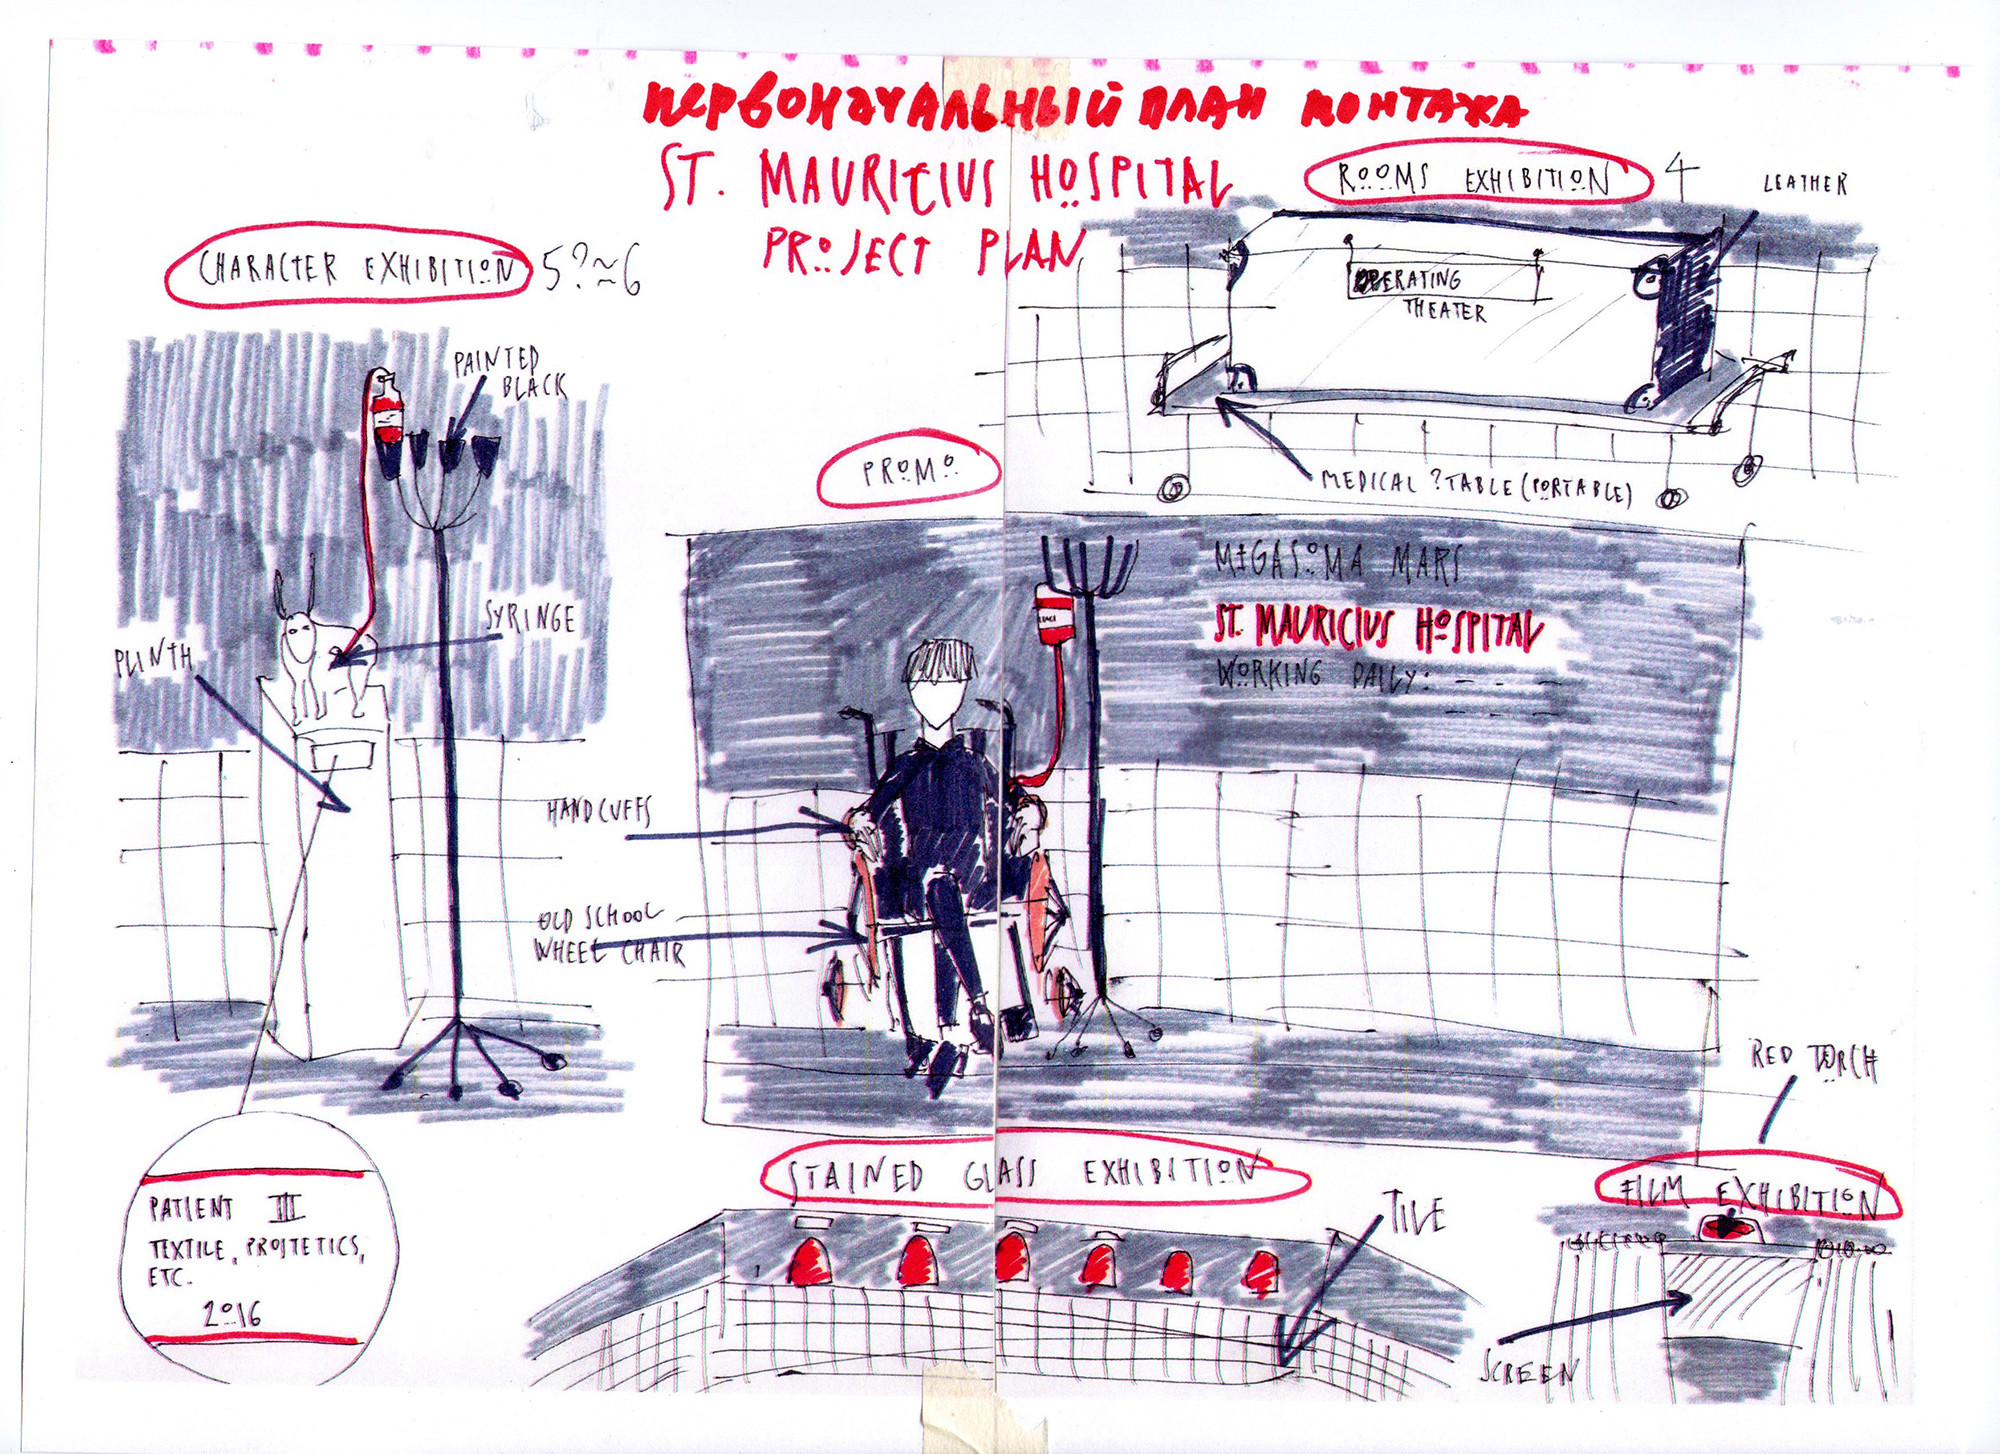 первоначальный план монтажа
ST. MAURICIUS HOSPITAL
PROJECT PLAN
CHARACTER EXHIBITION 5?~6
PAINTED
BLACK
SYRINGE
PLINTH
PATIENT III
TEXTILE, PROSTETICS,
ETC.
2016
ROOMS EXHIBITION 4
LEATHER
OPERATING
THEATER
MEDICAL ?TABLE (PORTABLE)
PROMO
MIGASOMA MARS
ST. MAURICIUS HOSPITAL
WORKING DAILY: - - -
HANDCUFFS
OLD SCHOOL
WHEEL CHAIR
STAINED GLASS EXHIBITION
TILE
RED TORCH
FILM EXHIBITION
SCREEN